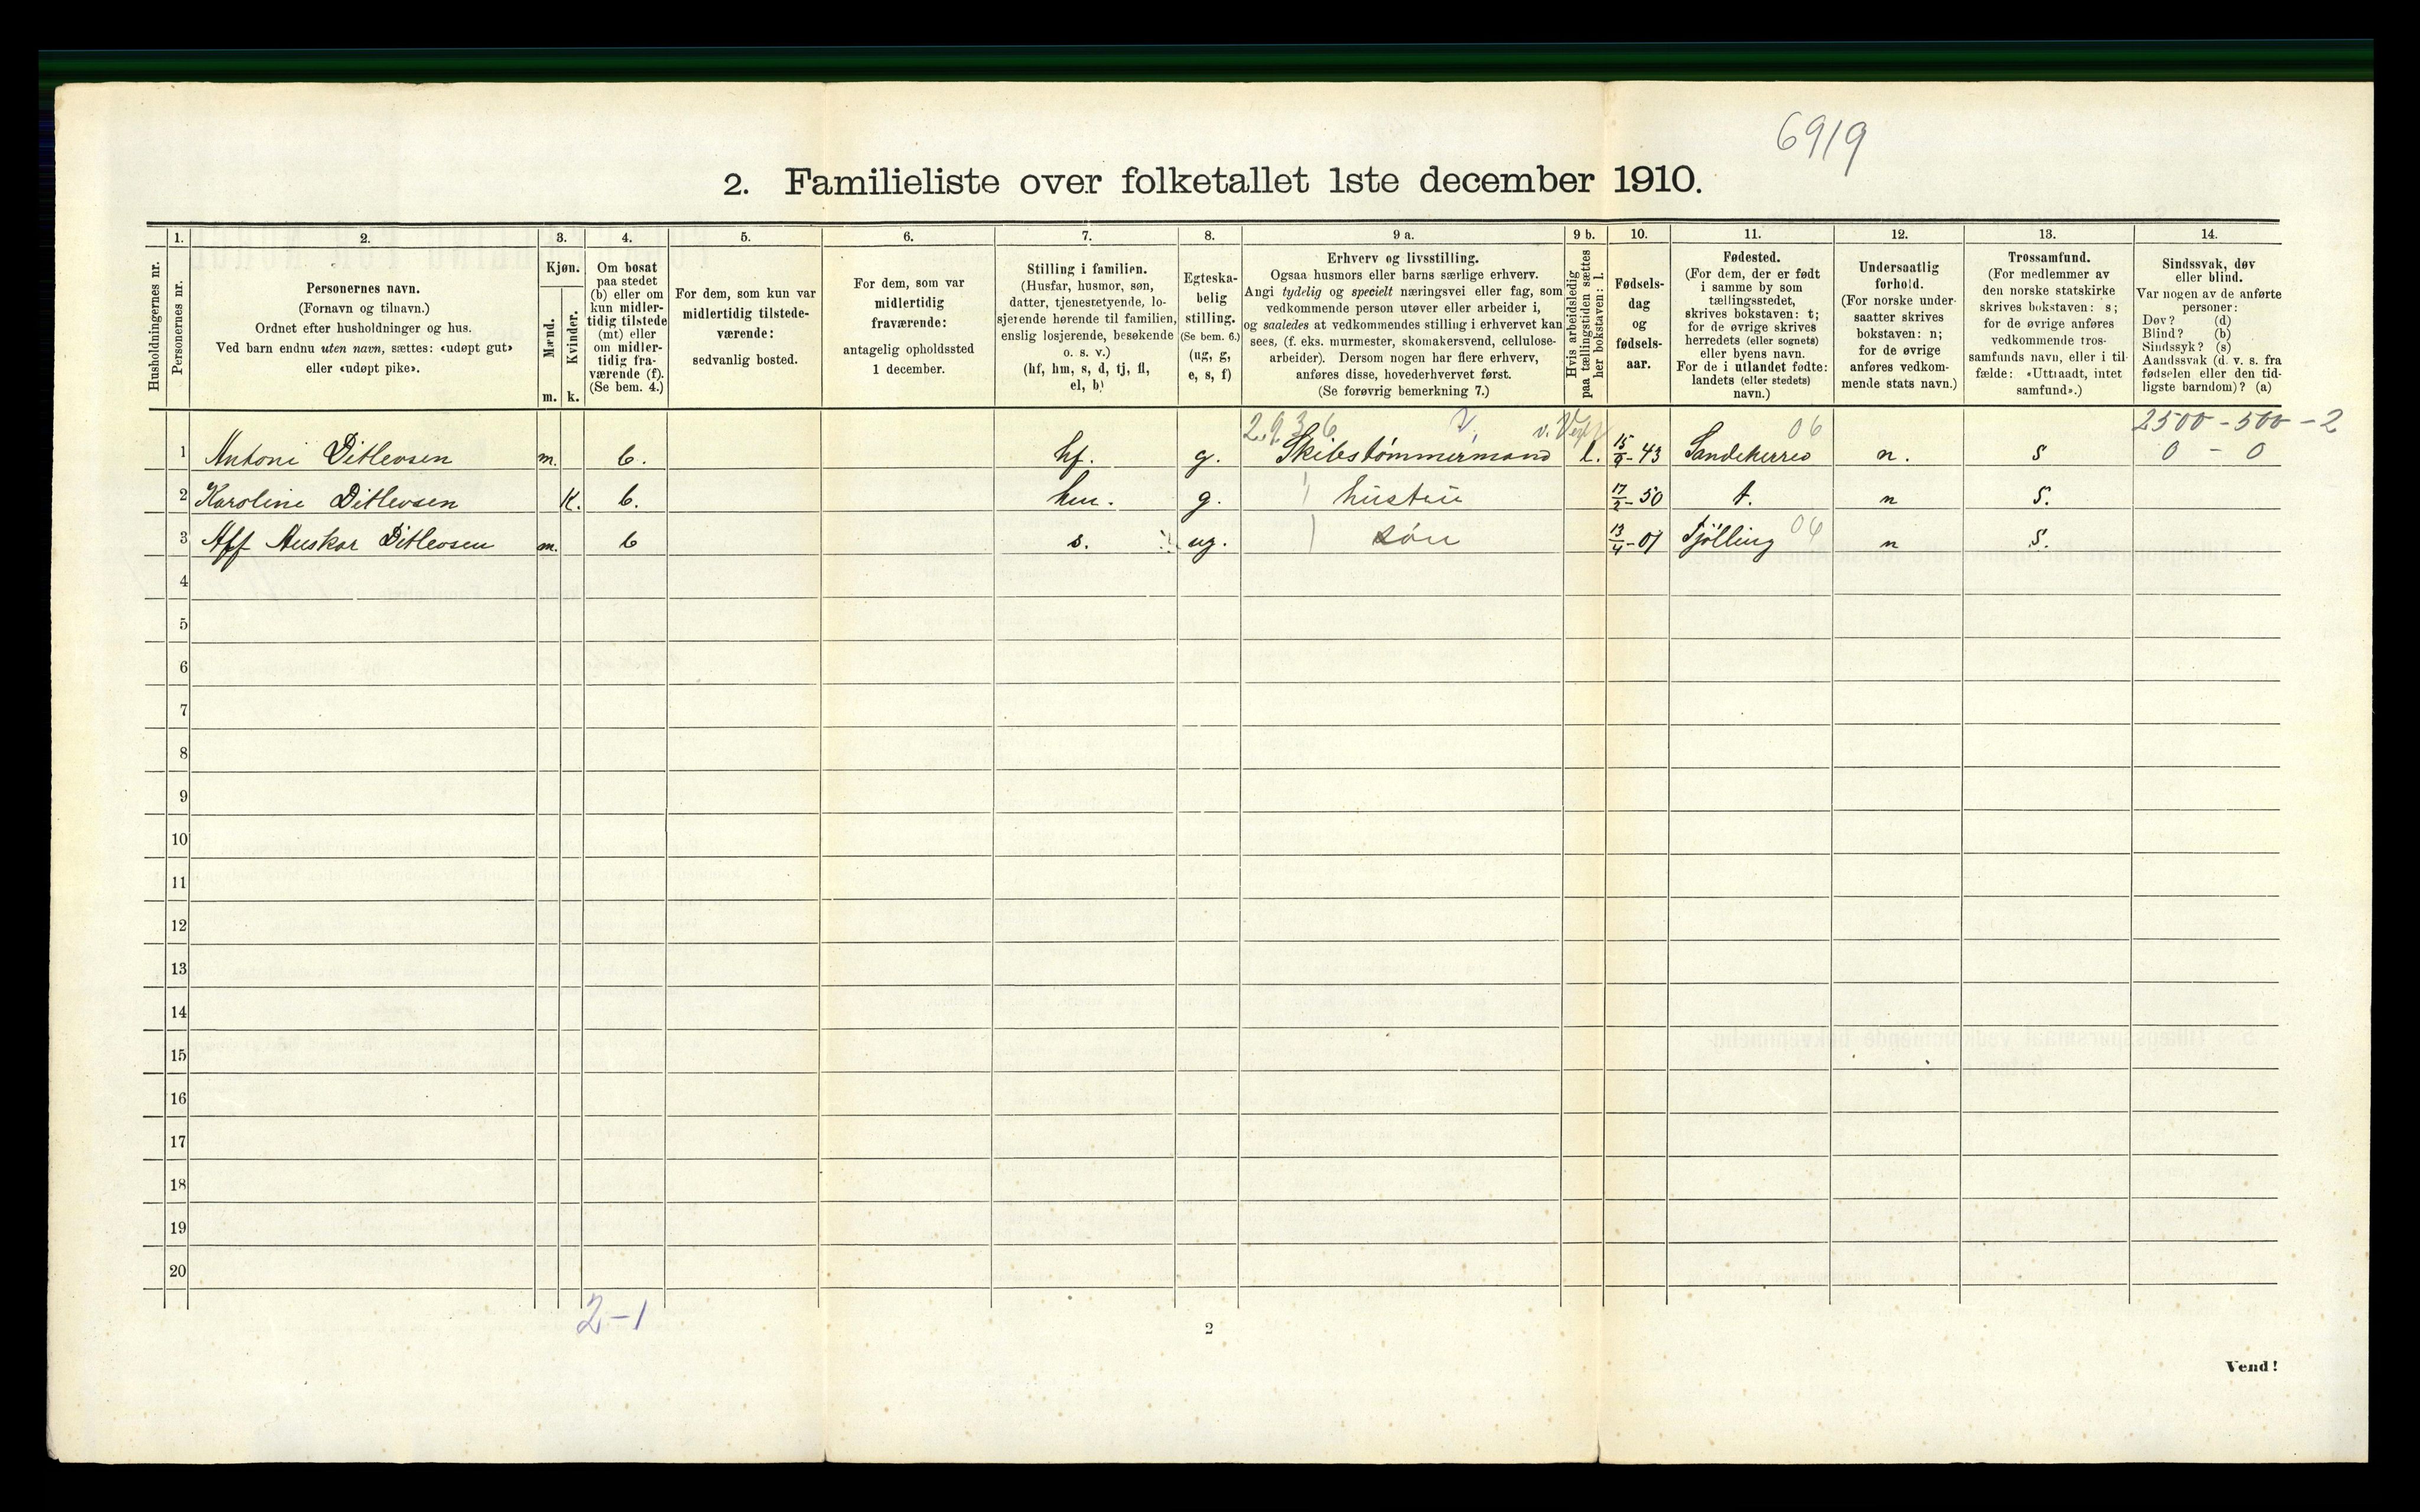 6919
2. Familieliste over folketallet 1ste december 1910.
Husholdningernes nr.
1.
Personernes nr.
2.
Personernes navn.
(Fornavn og tilnavn.)
Ordnet efter husholdninger og hus.
Ved barn endnu uten navn, sættes: «udøpt gut»
eller «udøpt pike».
3.
Kjøn.
Mænd.
Kvinder.
m.
k.
4.
Om bosat
paa stedet
(b) eller om
kun midler-
tidig tilstede
(mt) eller
om midler-
tidig fra-
værende (f).
(Se bem. 4.)
5.
For dem, som kun var
midlertidig tilstede-
værende:
sedvanlig bosted.
6.
For dem, som var
midlertidig
fraværende:
antagelig opholdssted
1 december.
7.
Stilling i familien.
(Husfar, husmor, søn,
datter, tjenestetyende, lo-
sjerende hørende til familien,
enslig losjerende, besøkende
o. s. v.)
(hf, hm, s, d, tj, fl,
el, b)
8.
Egteska-
belig
stilling.
(Se bem. 6.)
(ug, g,
e, s, f)
9 a.
Erhverv og livsstilling.
Ogsaa husmors eller barns særlige erhverv.
Angi tydelig og specielt næringsvei eller fag, som
vedkommende person utøver eller arbeider i,
og saaledes at vedkommendes stilling i erhvervet kan
sees, (f. eks. murmester, skomakersvend, cellulose-
arbeider). Dersom nogen har flere erhverv,
anføres disse, hovederhvervet først.
(Se forøvrig bemerkning 7.)
9 b.
Hvis arbeidsledig
paa tællingstiden sættes
her bokstaven: l.
10.
Fødsels-
dag
og
fødsels-
aar.
11.
Fødested.
(For dem, der er født
i samme by som
tællingsstedet,
skrives bokstaven: t;
for de øvrige skrives
herredets (eller sognets)
eller byens navn.
For de i utlandet fødte:
landets (eller stedets)
navn.)
12.
Undersaatlig
forhold.
(For norske under-
saatter skrives
bokstaven: n;
for de øvrige
anføres vedkom-
mende stats navn.)
13.
Trossamfund.
(For medlemmer av
den norske statskirke
skrives bokstaven: s;
for de øvrige anføres
vedkommende tros-
samfunds navn, eller i til-
fælde: «Uttraadt, intet
samfund».)
14.
Sindssvak, døv
eller blind.
Var nogen av de anførte
personer:
Døv? (d)
Blind? (b)
Sindssyk? (s)
Aandssvak (d. v. s. fra
fødselen eller den tid-
ligste barndom)? (a)
2936 06 2500 - 500 - 2
1 Antoni Ditlevsen m. b. hf. g. Skibstømmermand l. 43 Sandeherred n. s 0 - 0
2 Karoline Ditlevsen k. b. hm. g. hustru 17/2-50 t. n s.
3 Auskar Ditlevsen m. b s. ug. søn 13/4-01 Tjølling 06 n s.
4
5
6
7
8
9
10
11
12
13
14
15
16
17
18
19
20
2-1
2
Vend!